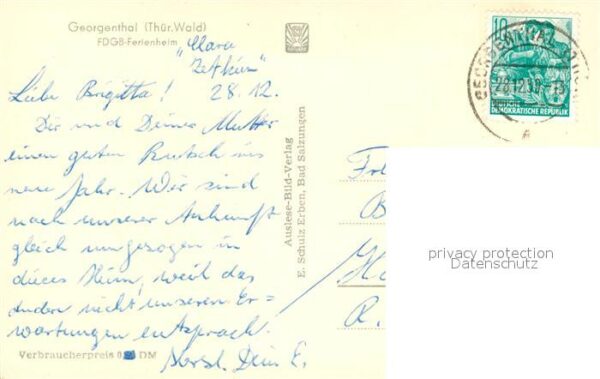 Georgenthal (Thür. Wald)
FDGB-Ferienheim
"Clara
Zetkin"
Liebe Brigitta! 28.12.
Dir und Deiner Mutter
einen guten Rutsch ins
neue Jahr. Wir sind
nach unserer Ankunft
gleich umgezogen in
dieses Heim, weil das
andere nicht unseren Er-
wartungen entsprach.
Herzl. Dein E.
Verbraucherpreis 0, DM
Auslese-Bild-Verlag
E. Schulz Erben, Bad Salzungen
10
DEUTSCHE
DEMOKRATISCHE REPUBLIK
GEORGENTHAL
28.12.
Fr
B
H
R.
privacy protection
Datenschutz